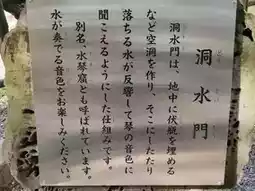 洞水門
洞水門は、地中に伏瓶を埋める
など空洞を作り、そこにしたたり
落ちる水が反響して琴の音色に
聞こえるようにした仕組みです。
別名、水琴窟とも呼ばれています。
水が奏でる音色をお楽しみください。